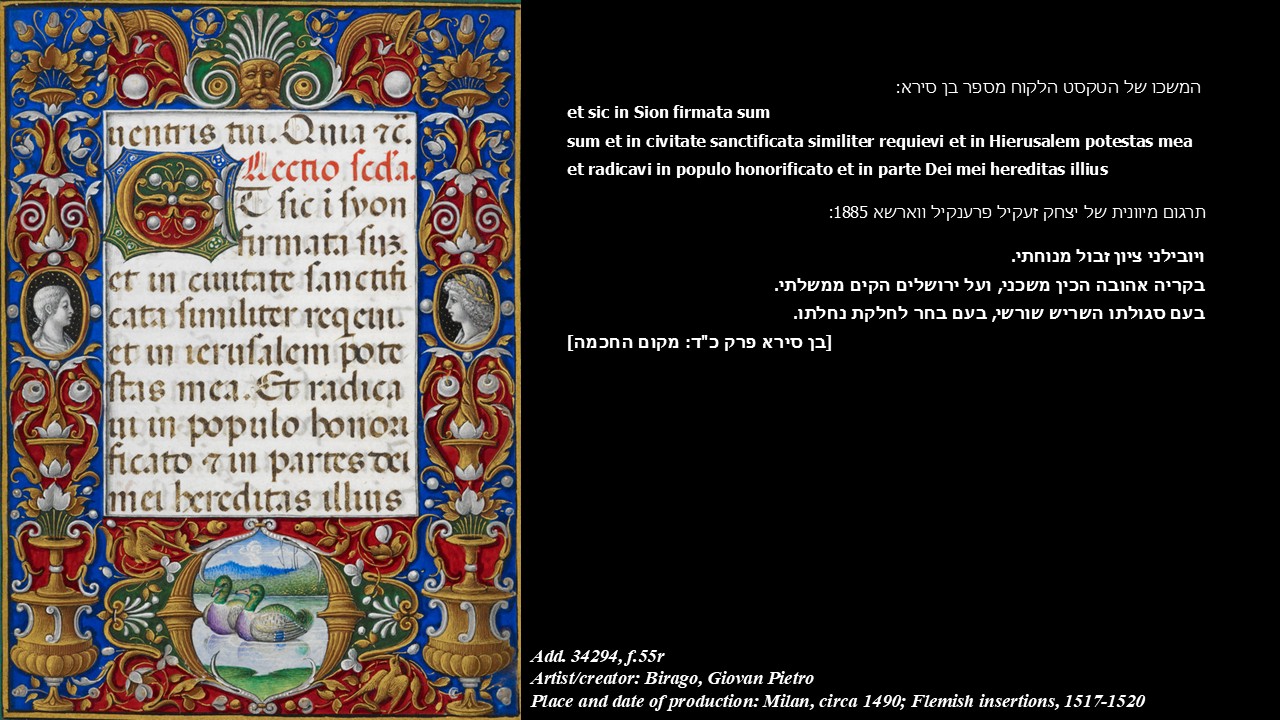 uentris tui. Quia rc̄.
Lectio scda.
ET sic i syon
firmata suz.
et in ciuitate sanctifi
cata similiter reqeui.
et in ierusalem pote
stas mea. Et radica
ui in populo honori
ficato ⁊ in partes dei
mei hereditas illius
המשכו של הטקסט הלקוח מספר בן סירא:
et sic in Sion firmata sum
sum et in civitate sanctificata similiter requievi et in Hierusalem potestas mea
et radicavi in populo honorificato et in parte Dei mei hereditas illius
תרגום מיוונית של יצחק זעקיל פרענקיל ווארשא 1885:
ויובילני ציון זבול מנוחתי.
בקריה אהובה הכין משכני, ועל ירושלים הקים ממשלתי.
בעם סגולתו השריש שורשי, בעם בחר לחלקת נחלתו.
[בן סירא פרק כ"ד: מקום החכמה]
Add. 34294, f.55r
Artist/creator: Birago, Giovan Pietro
Place and date of production: Milan, circa 1490; Flemish insertions, 1517-1520